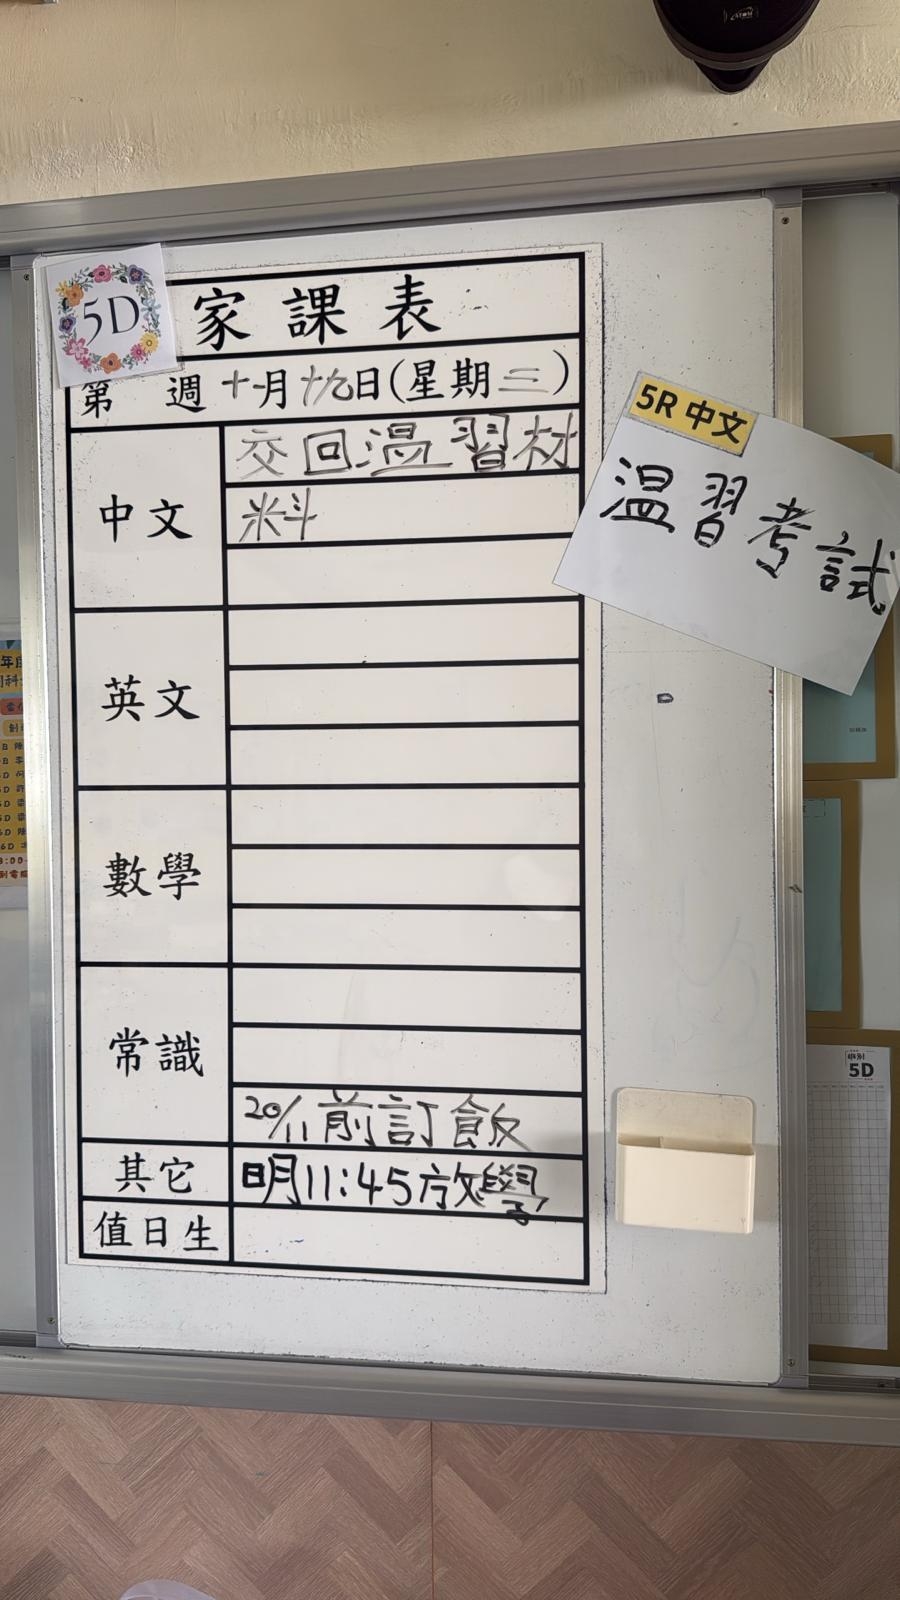 5D
家課表
第 週十一月十九日(星期三)
中文
交回溫習材
料
英文
數學
常識
20/11前訂飯
其它
明11:45放學
值日生
5R 中文
溫習考試
5D